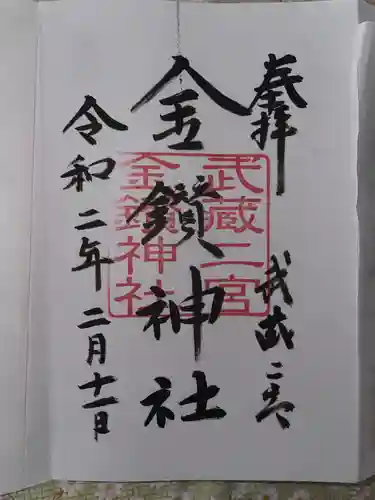 奉拝
武蔵二宮
金鑚神社
令和二年二月十一日
武蔵二宮
金鑚神社